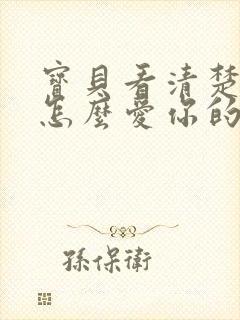 寶貝看清楚
怎麼愛你的
孫保衛